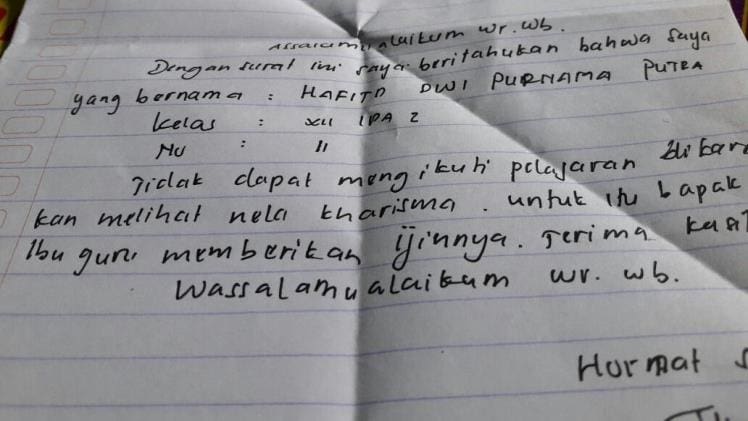 Assalamualaikum wr. wb.
Dengan surat ini saya beritahukan bahwa saya
yang bernama : HAFITD DWI PURNAMA PUTRA
Kelas : XII IPA 2
NU : 11
Tidak dapat mengikuti pelajaran dikare
kan melihat nela kharisma. untuk itu bapak
Ibu guru memberikan ijinnya. Terima kasi
Wassalamualaikum wr. wb.
Hormat